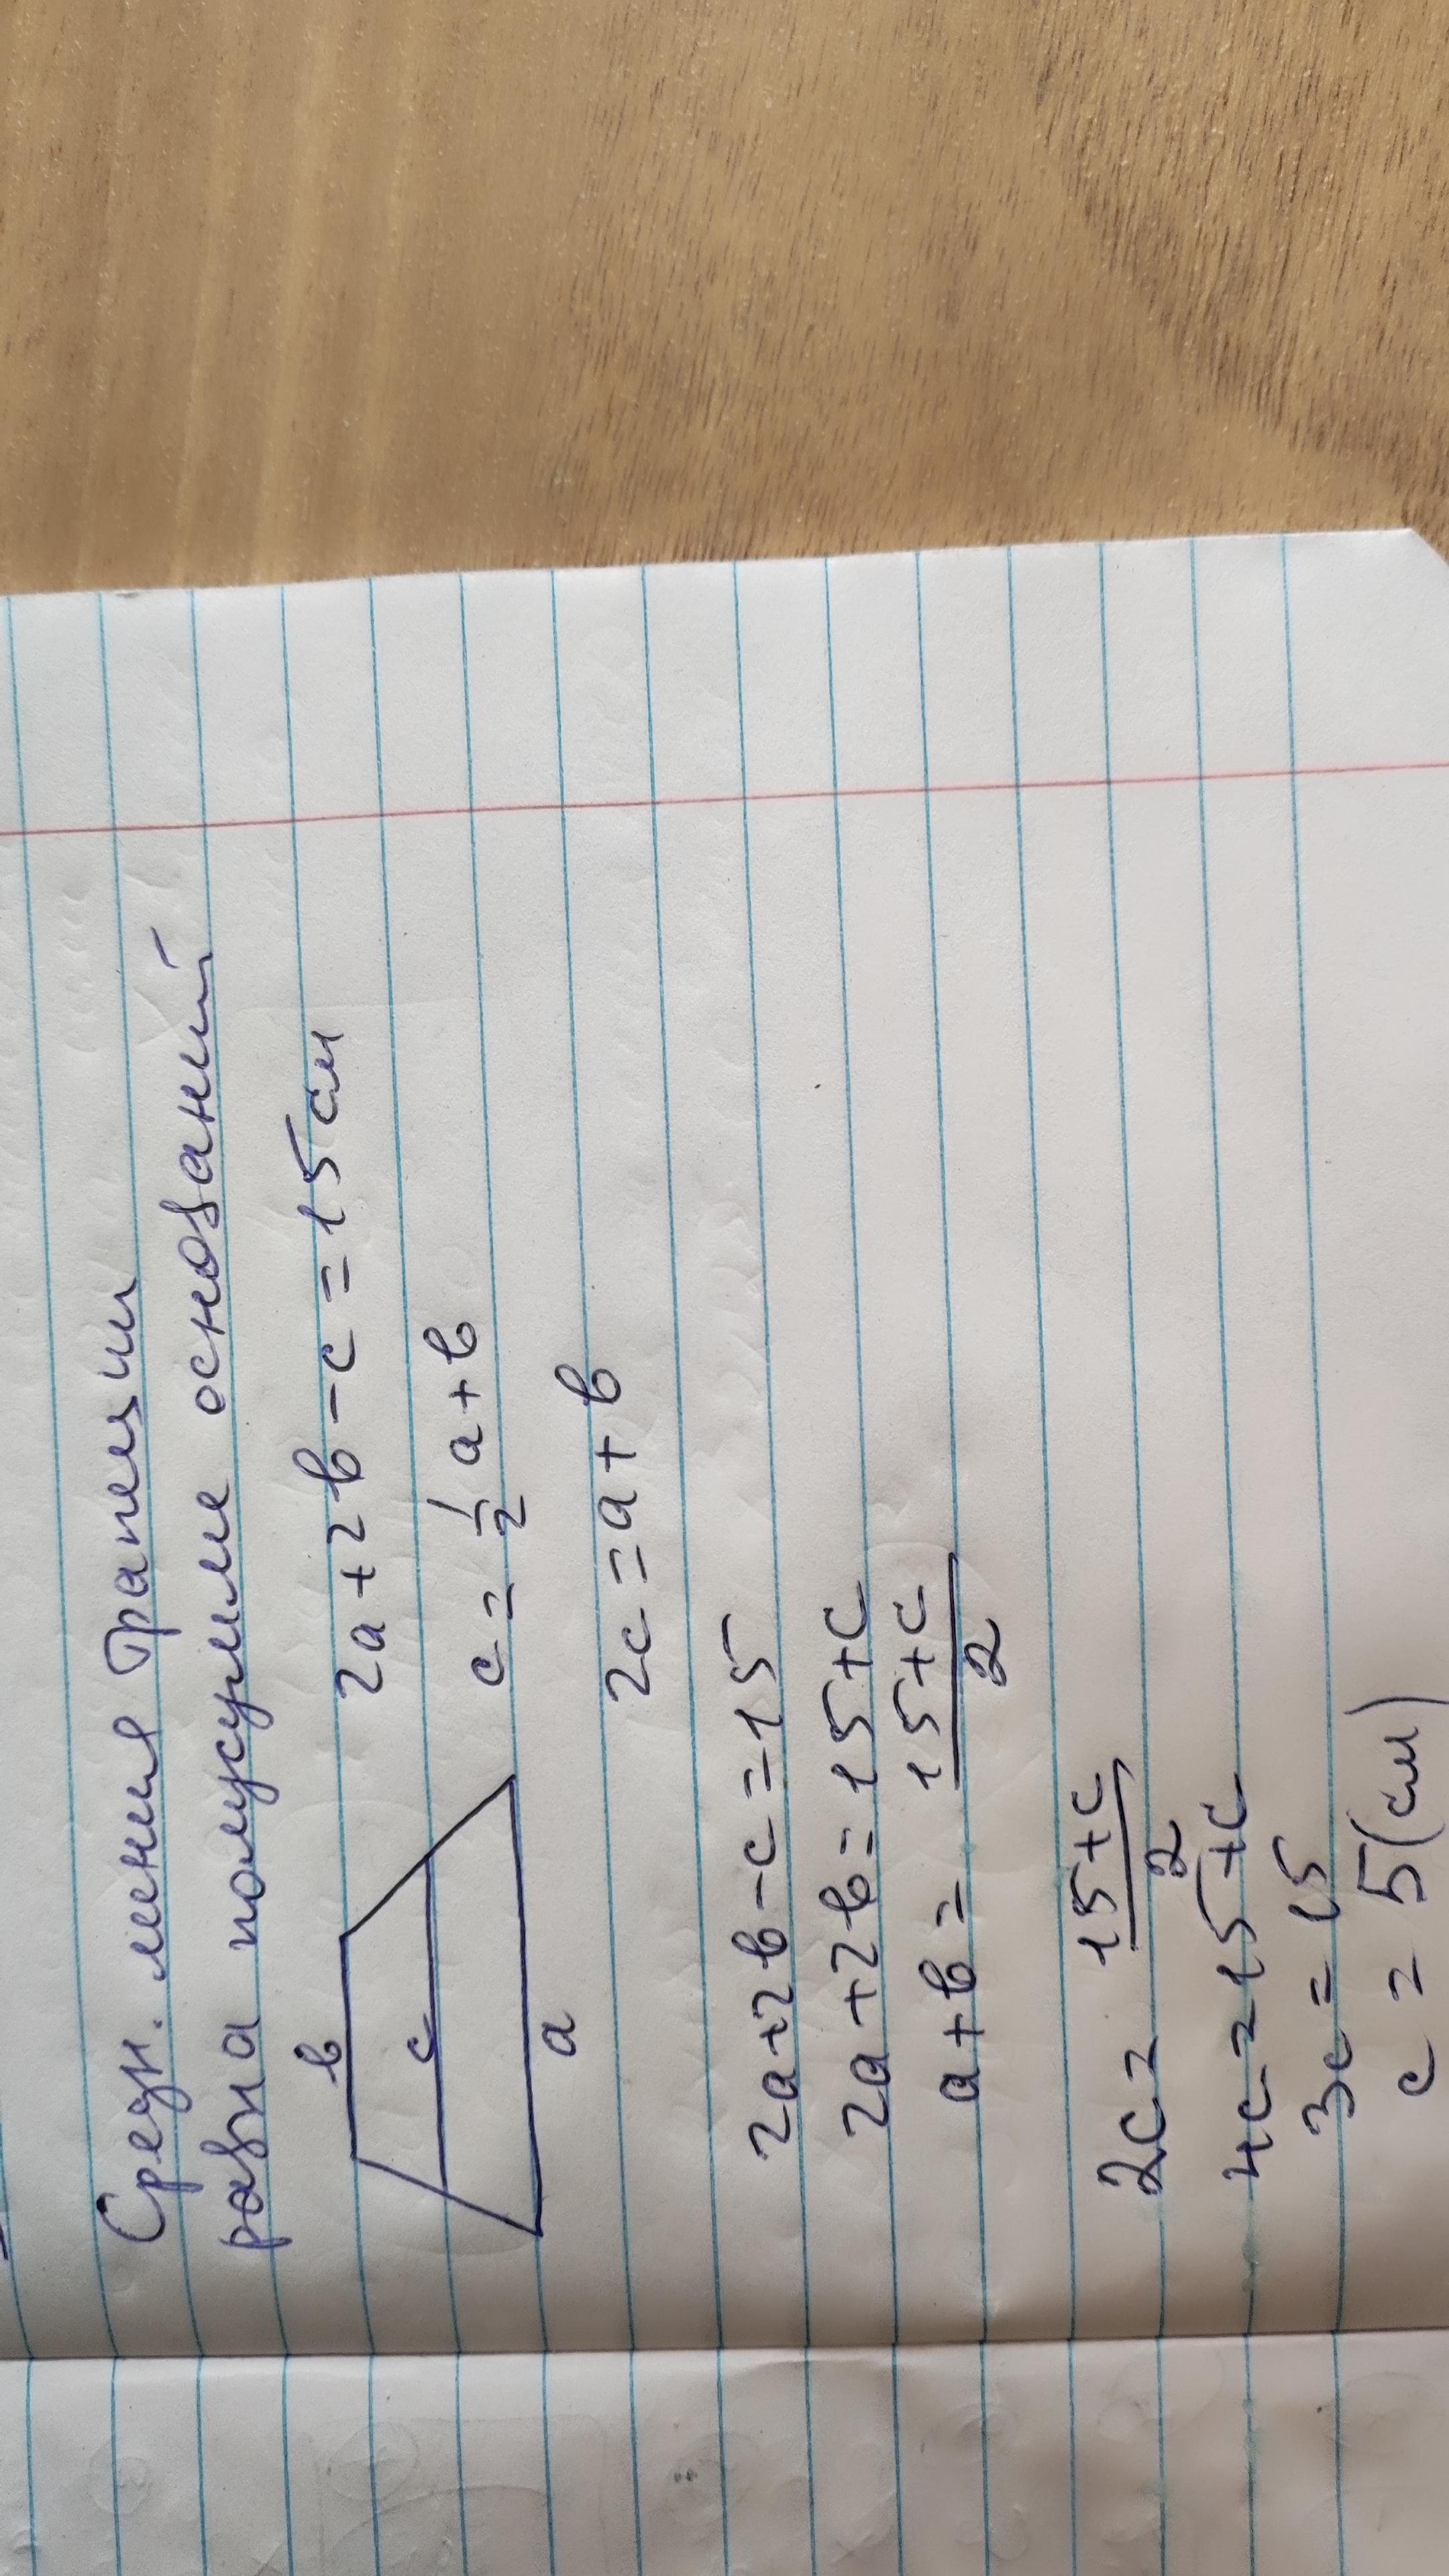 Средн. линия трапеции
равна полусумме оснований
2a+2b-c=15см
b
c
a
c=1/2 a+b
2c=a+b
2a+2b-c=15
2a+2b=15+c
a+b= 15+c/2
2c= 15+c/2
4c=15+c
3c=15
c=5(см)